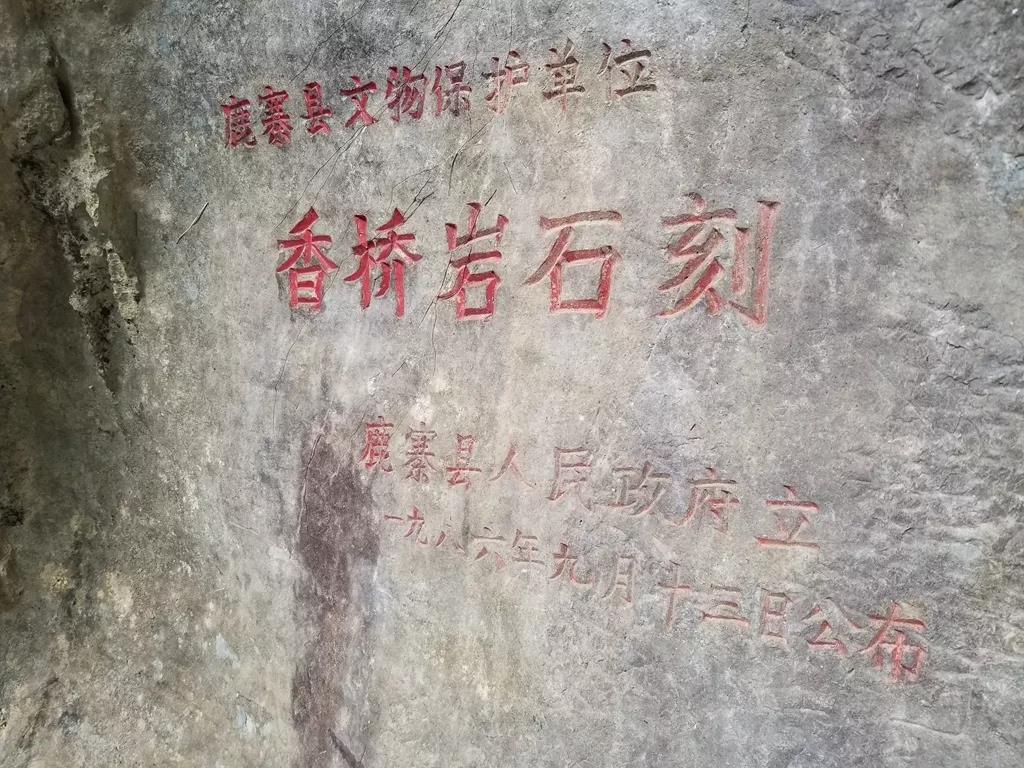 鹿寨县文物保护单位
香桥岩石刻
鹿寨县人民政府立
一九八六年九月十三日公布